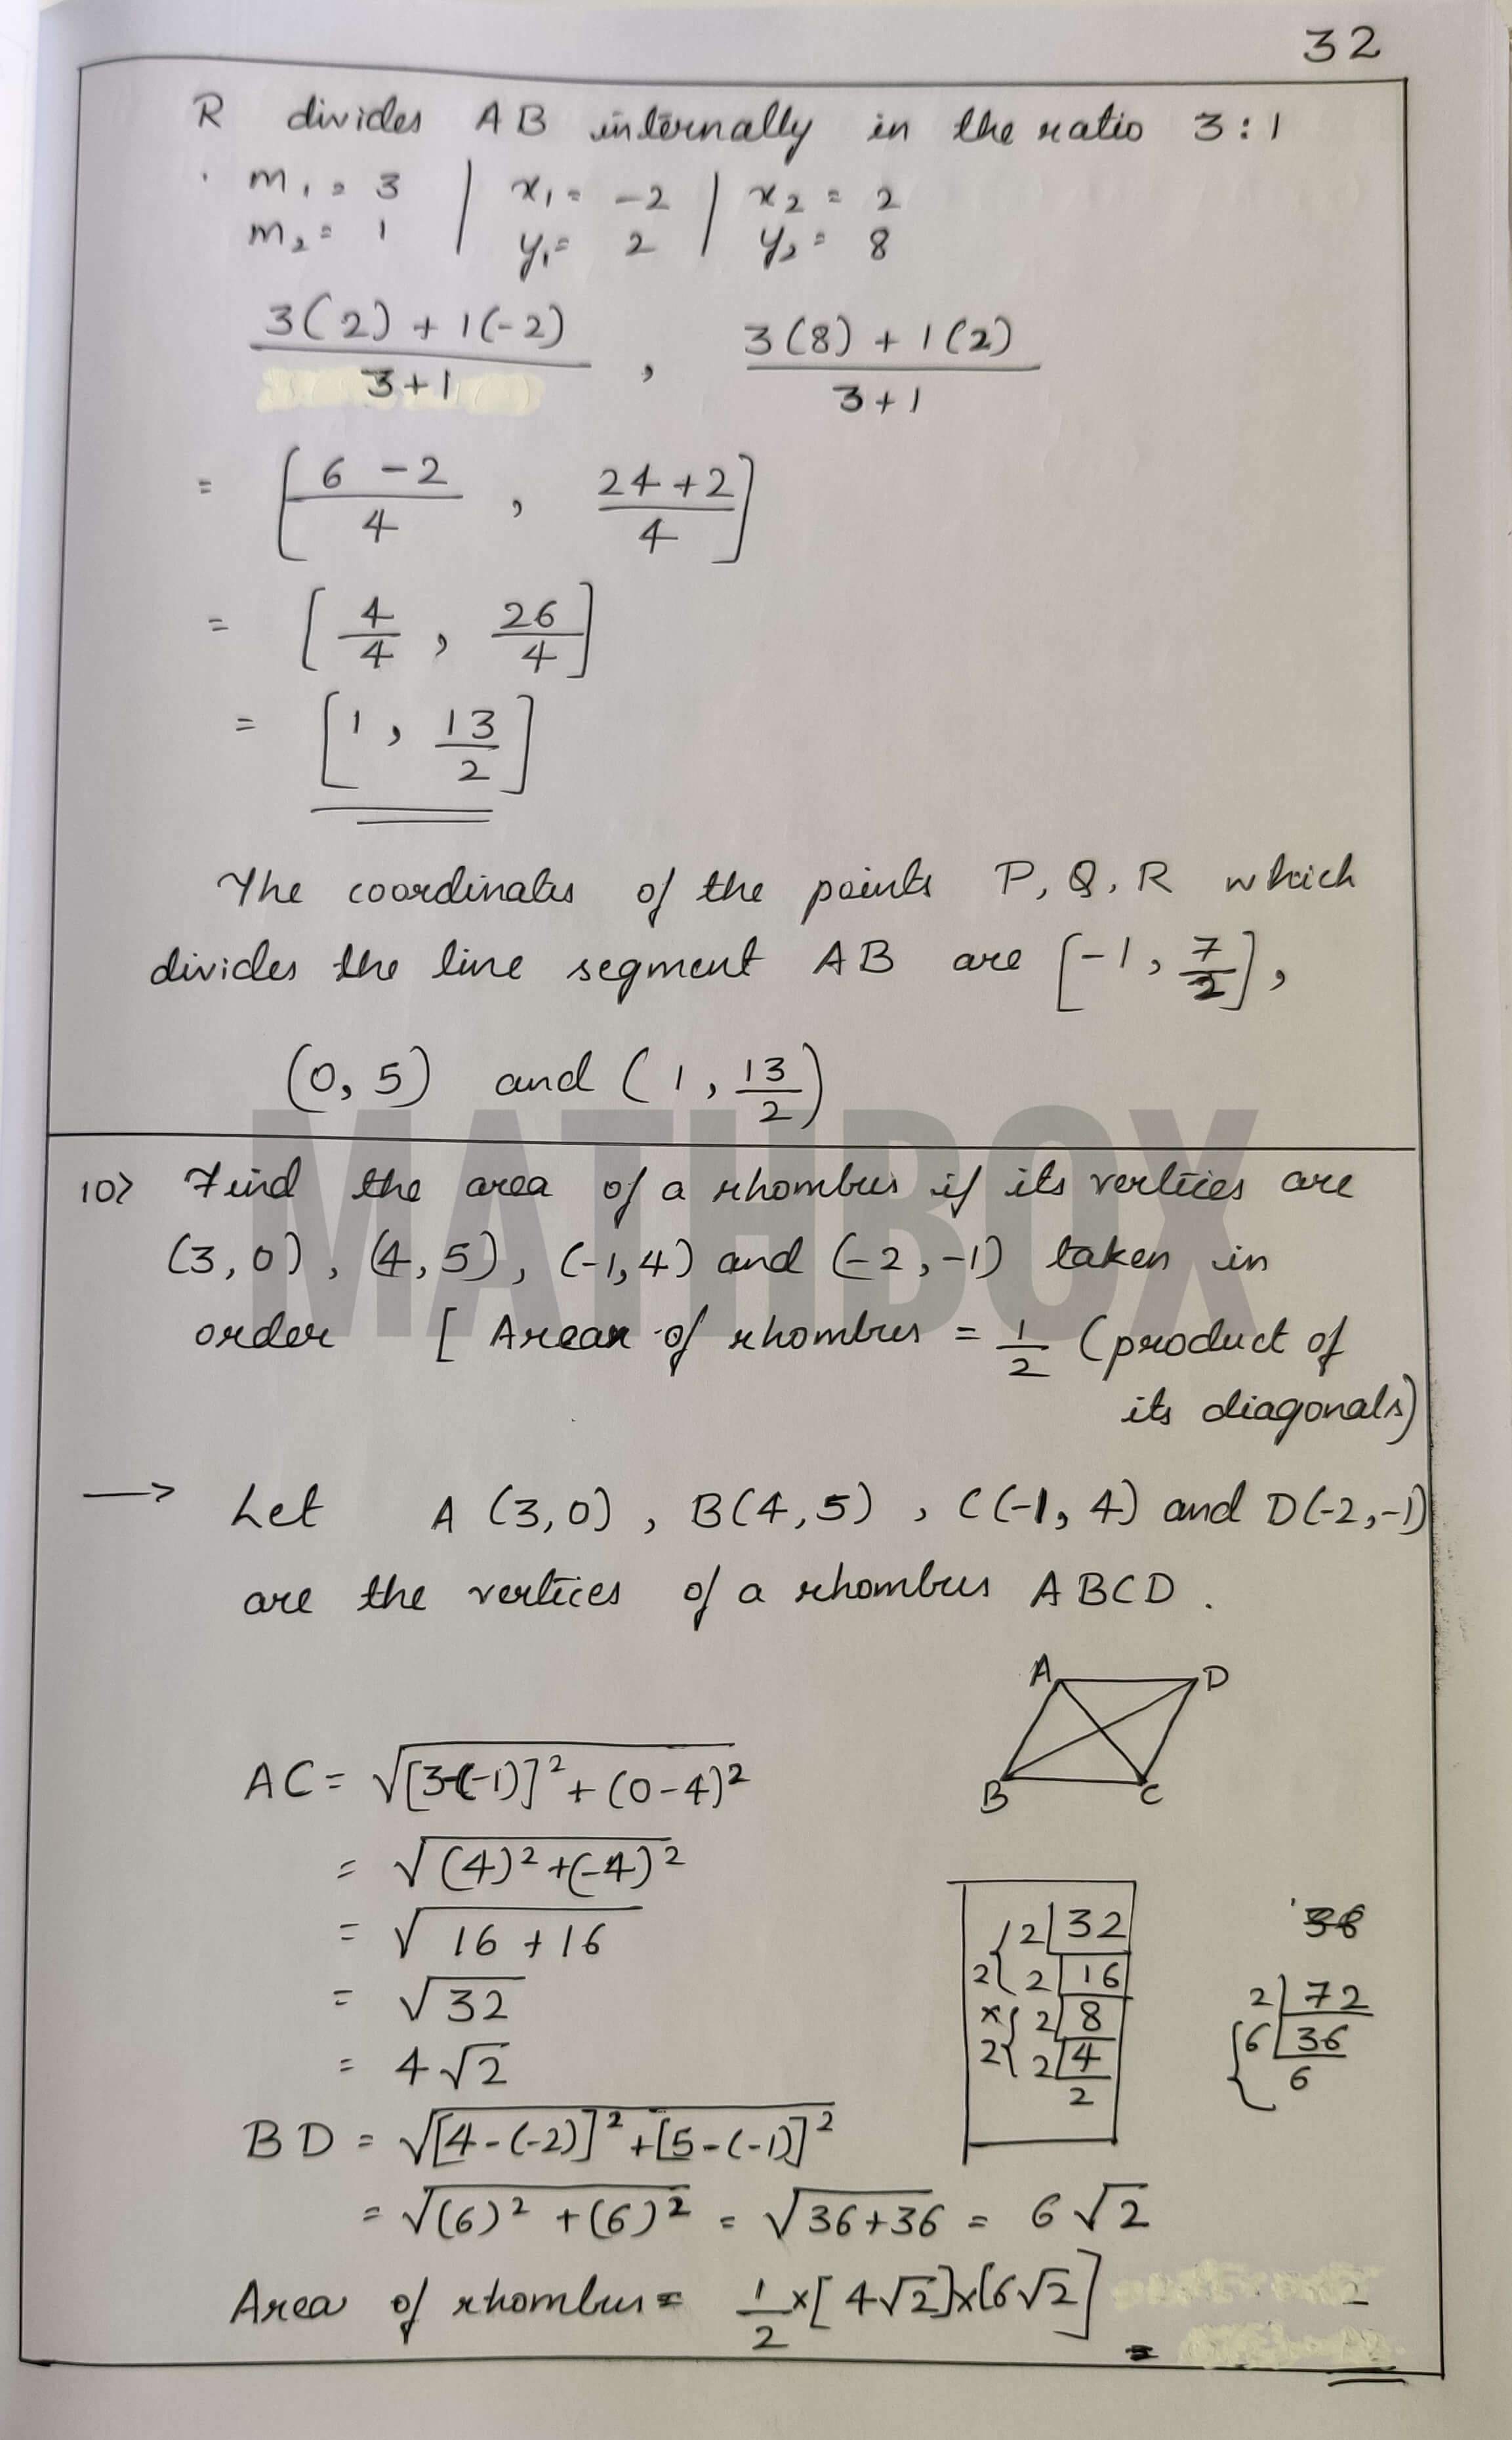 32
R divides AB internally in the ratio 3:1
m₁ = 3 | x₁ = -2 | x₂ = 2
m₂ = 1 | y₁ = 2 | y₂ = 8
3(2) + 1(-2) / 3+1 , 3(8) + 1(2) / 3+1
= [6 - 2 / 4 , 24 + 2 / 4]
= [4/4 , 26/4]
= [1 , 13/2]
The coordinates of the points P, Q, R which
divides the line segment AB are [-1, 7/2],
(0, 5) and (1, 13/2)
MATHBOX
10> Find the area of a rhombus if its vertices are
(3,0), (4,5), (-1,4) and (-2,-1) taken in
order [ Area of rhombus = 1/2 (product of
its diagonals)
→ Let A (3,0), B(4,5), C(-1,4) and D(-2,-1)
are the vertices of a rhombus ABCD.
A D
B C
AC = √[3-(-1)]² + (0-4)²
= √(4)² + (-4)²
= √16 + 16
= √32
= 4√2
2 | 32
2 2 | 16
× 2 | 8
2 2 | 4
2
36
2 | 72
6 | 36
6
BD = √[4-(-2)]² + [5-(-1)]²
= √(6)² + (6)² = √36+36 = 6√2
Area of rhombus = 1/2 × [4√2] × [6√2]
=